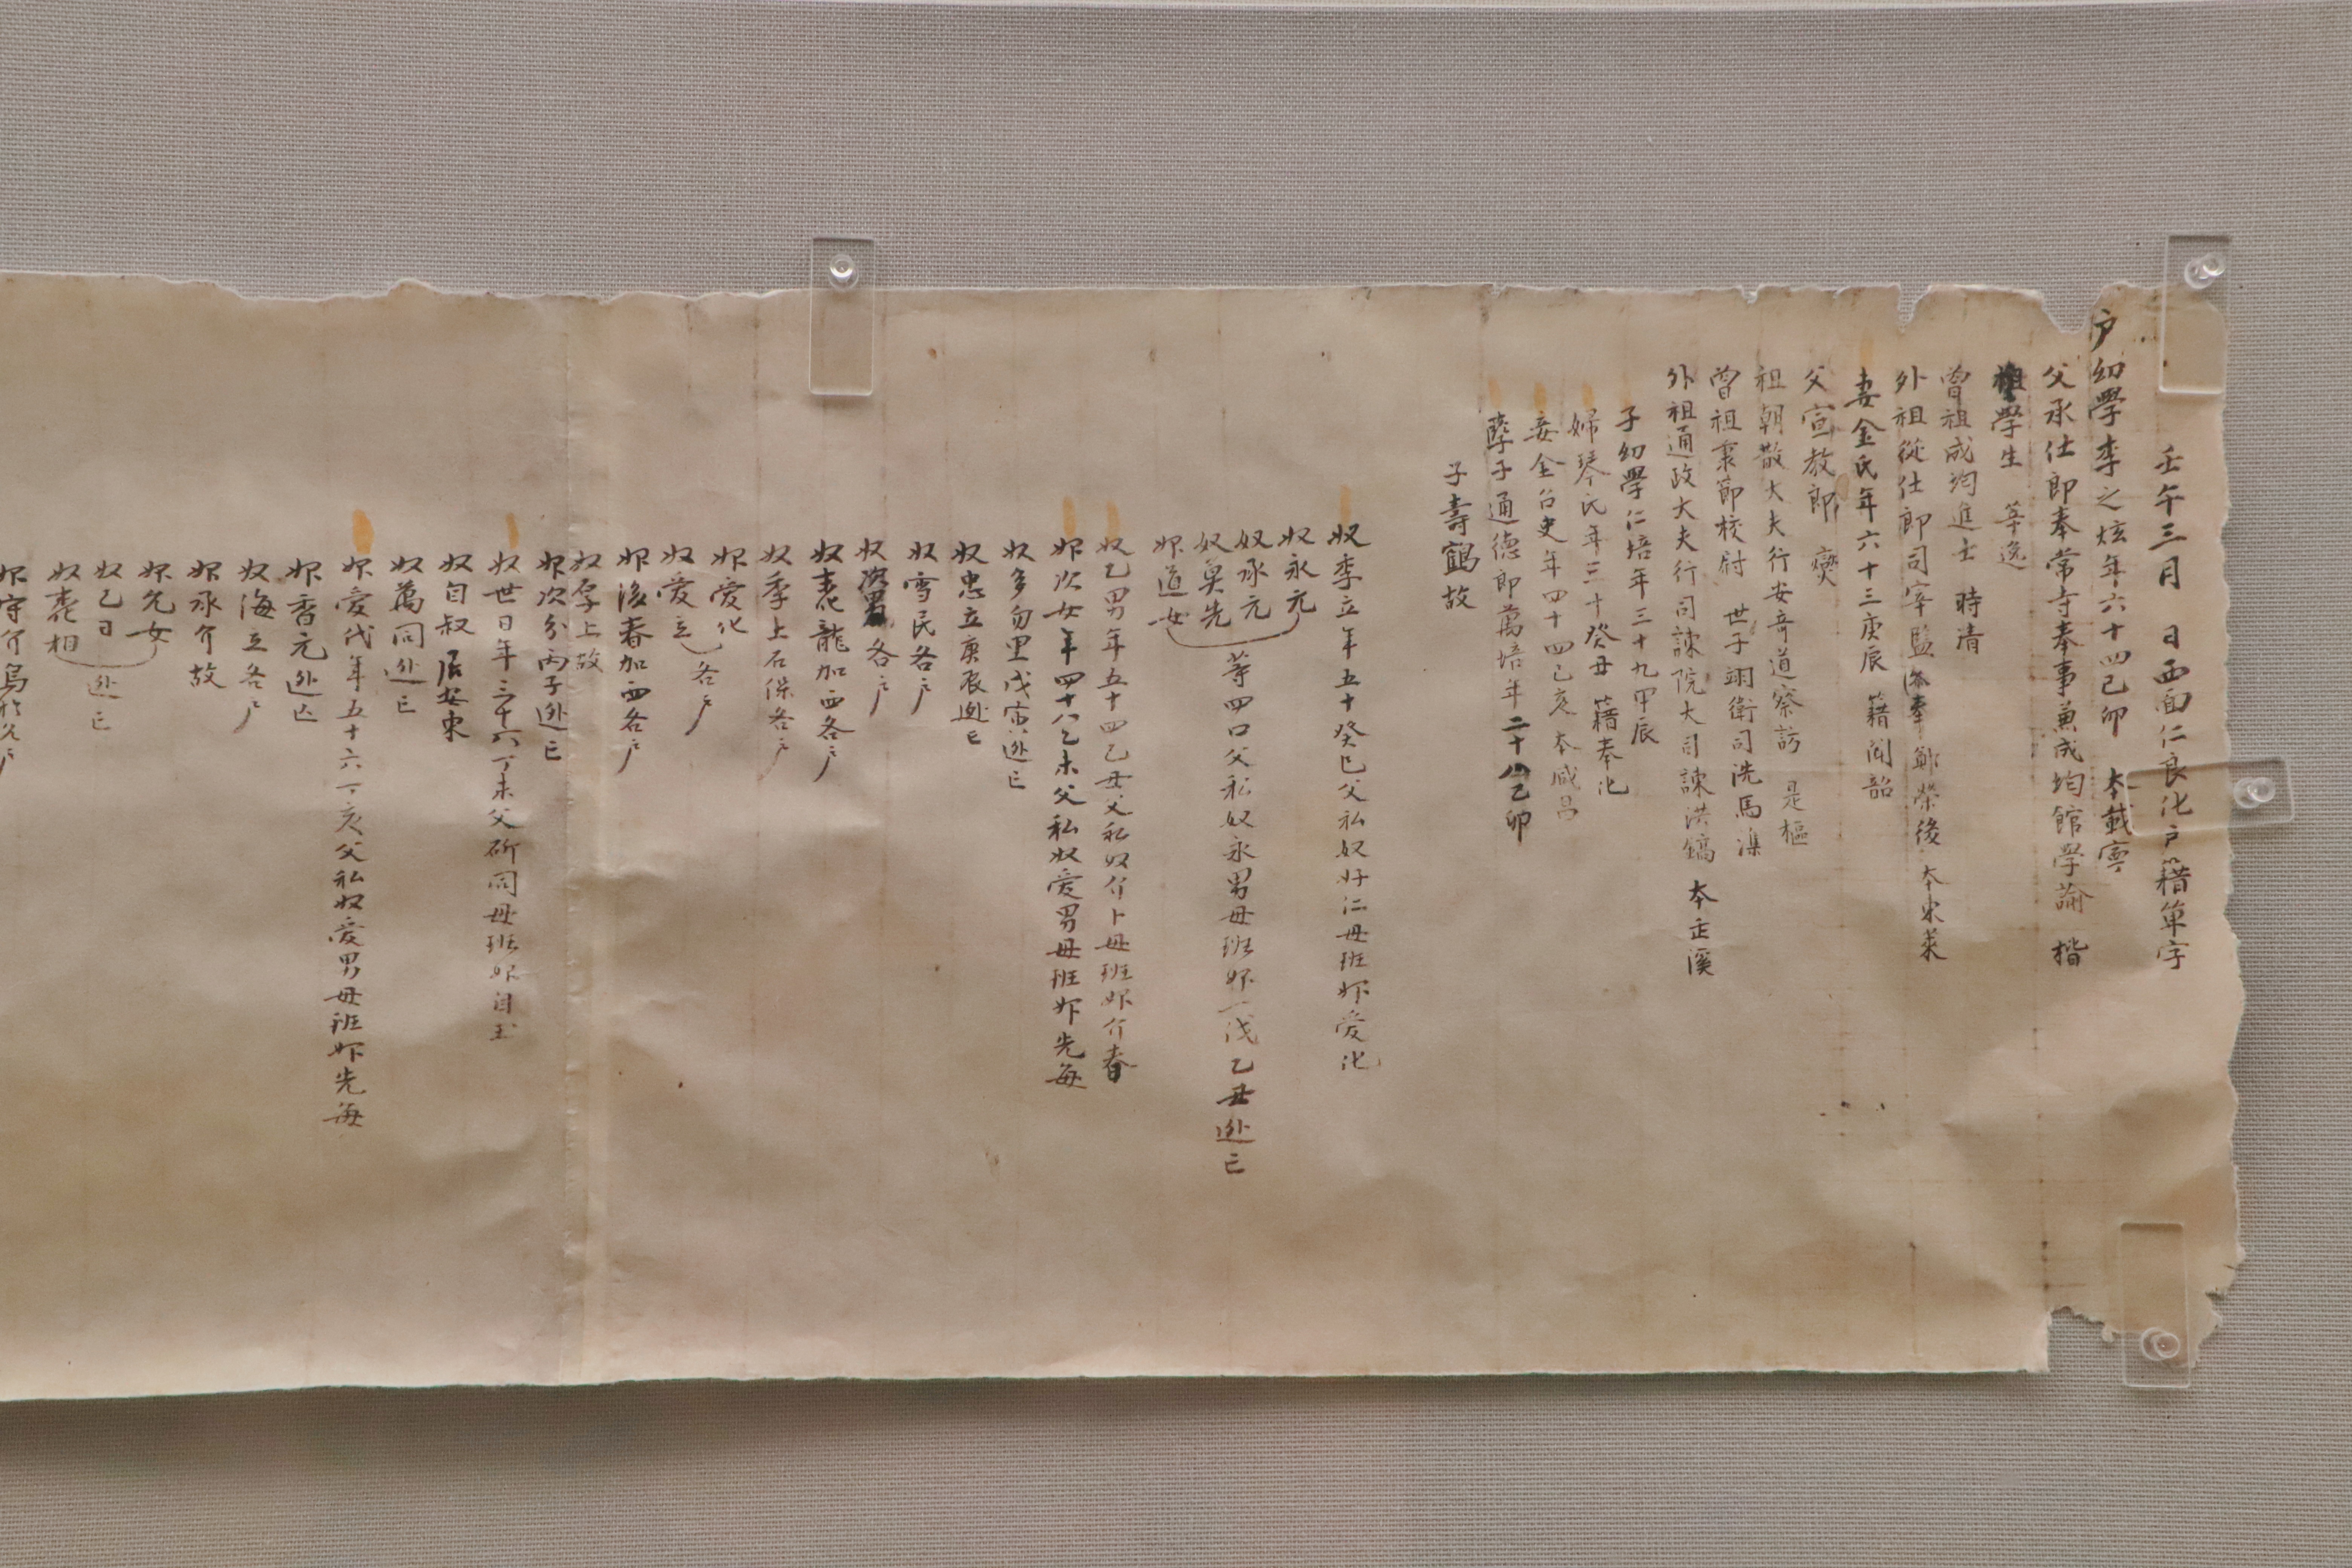 壬午三月 日西面仁良化戶籍單字
戶幼學李之炫年六十四己卯 本載寧
父承仕郎奉常寺奉事兼成均館學諭 楷
祖學生 英逸
曾祖成均進士 時清
外祖從仕郎司宰監奉奉鄭榮後 本東萊
妻金氏年六十三庚辰 籍聞韶
父宣敎郎 㷍
祖朝散大夫行安奇道察訪 是樞
曾祖秉節校尉 世子翊衛司洗馬 渫
外祖通政大夫行司諫院大司諫洪鎬 本缶溪
子幼學仁培年三十九甲辰
婦琴氏年三十癸丑 籍奉化
妾金召史年四十四己亥本咸昌
孼子通德郎萬培年二十八乙卯
子壽鶴故
奴季立年五十癸巳父私奴好仁母班婢愛化
奴永元
奴承元
奴莫先
婢道女
等四口父私奴永男母班婢一代乙丑逃亡
奴乙男年五十四乙丑父私奴介卜母班婢介春
婢次女年四十八乙未父私奴愛男母班婢先每
奴多勿里戊寅逃亡
奴忠立庚辰逃亡
奴雪民各戶
奴次男各戶
奴春龍加西各戶
奴季上石保各戶
婢愛化
奴愛立
各戶
婢後春加西各戶
奴厚上故
婢次分丙子逃亡
奴世日年三十六丁未父斫同母班婢自玉
奴自叔居安東
奴萬同逃亡
婢愛代年五十六丁亥父私奴愛男母班婢先每
婢香元逃亡
奴海立各戶
婢承介故
婢先女
奴乙日
奴春相
逃亡